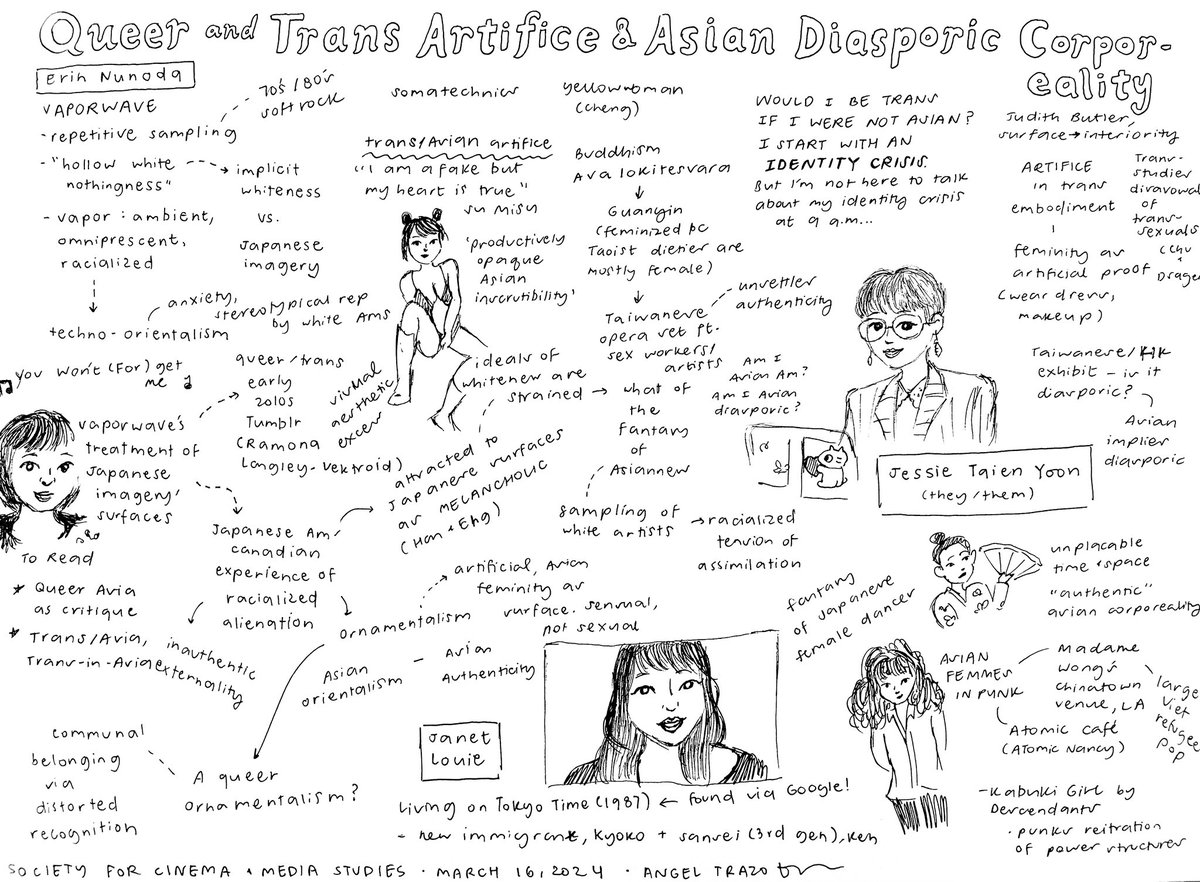 Queer and Trans Artifice & Asian Diasporic Corpor-
eality
Erin Nunoda
VAPORWAVE
- repetitive sampling
70's/80's
soft rock
- "hollow white
nothingness"
implicit
whiteness
vs.
Japanese
imagery
- vapor: ambient,
omniprescent,
racialized
techno-orientalism
anxiety,
stereotypical rep
by white Ams
You won't (For) get
me
vaporwave's
treatment of
Japanese
imagery/
surfaces
queer/trans
early
2010s
Tumblr
(Ramona
Langley-Vektroid)
visual
aesthetic
excess
Japanese Am/
Canadian
experience of
racialized
alienation
attracted to
Japanese surfaces
as MELANCHOLIC
(Han + Eng)
inauthentic
externality
ornamentalism
artificial, Asian
femininity as
surface. sensual,
not sexual
Asian
orientalism
-
Asian
authenticity
A queer
ornamentalism?
communal
belonging
via
distorted
recognition
To Read
* Queer Asia
as critique
* Trans/Asia,
Trans-in-Asia
somatechnics
trans/Asian artifice
"I am a fake but
my heart is true"
Su Misu
'productively
opaque
Asian
inscrutibility'
ideals of
whiteness are
strained
what of
the
fantasy
of
Asianness
sampling of
white artists
racialized
tension of
assimilation
yellow woman
(Cheng)
Buddhism
Avalokitesvara
Guanyin
(feminized bc
Taoist dieties are
mostly female)
Taiwanese
opera set ft.
sex workers/
artists
unsettles
authenticity
Am I
Asian Am?
Am I Asian
diasporic?
WOULD I BE TRANS
IF I WERE NOT ASIAN?
I START WITH AN
IDENTITY CRISIS.
But I'm not here to talk
about my identity crisis
at 9 a.m...
Jessie Taien Yoon
(they/them)
Judith Butler,
surface → interiority
ARTIFICE
in trans
embodiment
feminity as
artificial proof
(wear dress,
makeup)
Trans-
studies
disavowal
of
trans-
sexuals
(Chu +
Drager
Taiwanese/HK
exhibit - is it
diasporic?
Asian
implies
diasporic
Janet
Louie
Living on Tokyo Time (1987) ← found via Google!
- new immigrant, Kyoko + sansei (3rd gen), Ken
fantasy
of Japanese
female dancer
unplacable
time + space
"authentic"
asian corporeality
ASIAN
FEMMES
IN PUNK
Madame
Wong's
Chinatown
venue, LA
large
Viet
refugee
pop
Atomic Café
(Atomic Nancy)
- Kabuki Girl by
Descendants
• punks reitration
of power structures
SOCIETY FOR CINEMA + MEDIA STUDIES · MARCH 16, 2024 · ANGEL TRAZO